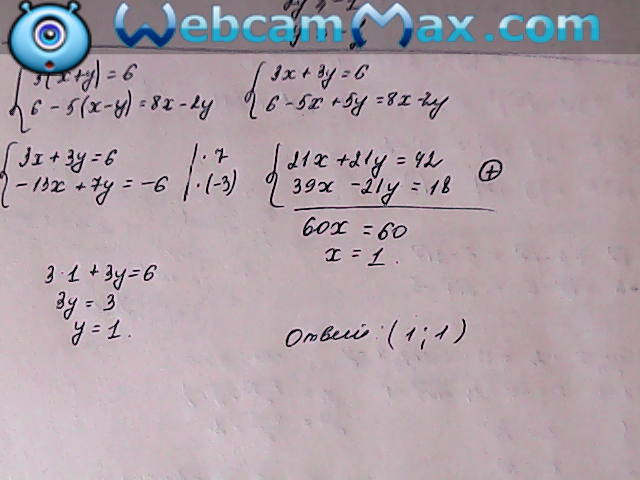 WebcamMax.com
3(x+y)=6
6-5(x-y)=8x-2y
3x+3y=6
6-5x+5y=8x-2y
3x+3y=6 | ·7
-13x+7y=-6 | ·(-3)
21x+21y=42
39x-21y=18 ⊕
60x=60
x=1.
3·1+3y=6
3y=3
y=1.
Ответ: (1;1)